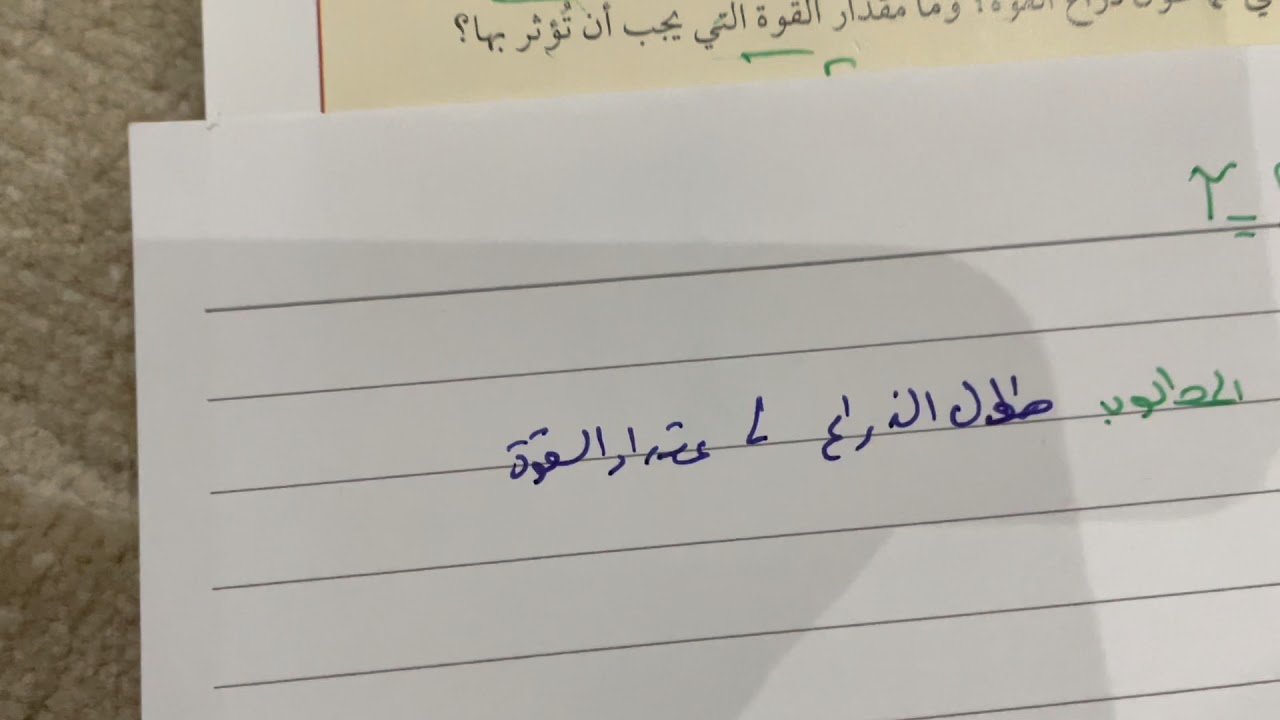 ذراع القوة؟ وما مقدار القوة التي يجب أن تُؤثر بها؟
٢
المطلوب طول الذراع ، مقدار القوة